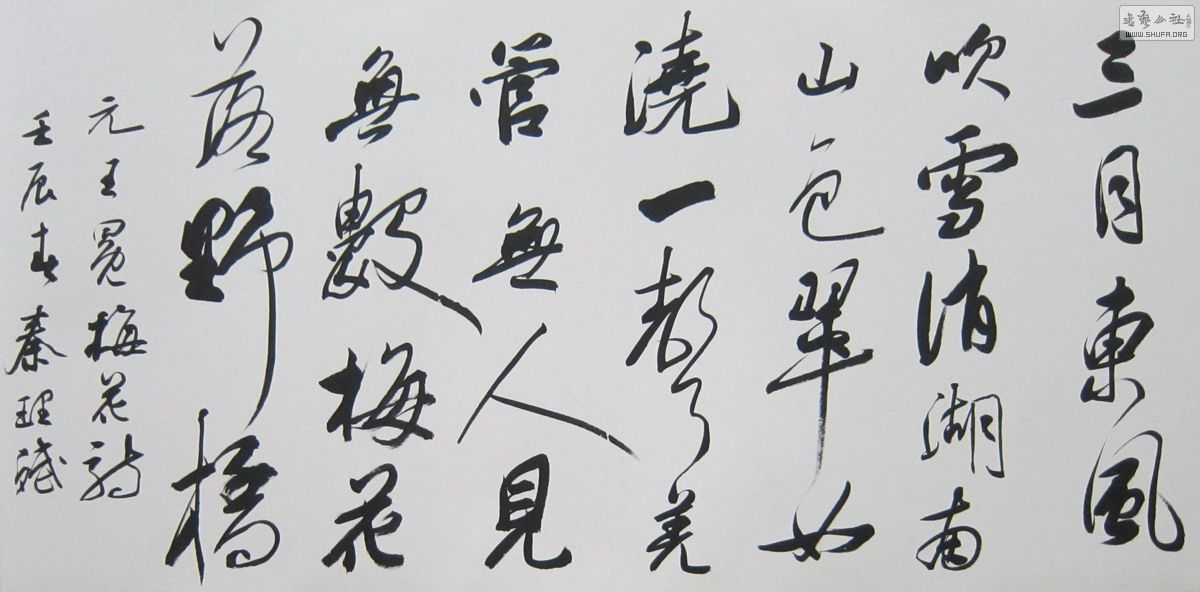 三月東風
吹雪消湖南
山色翠如
澆一聲羌
管無人見
無數梅花
落野橋
元王冕梅花詩
壬辰春秦理斌
書藝公社
WWW.SHUFA.ORG